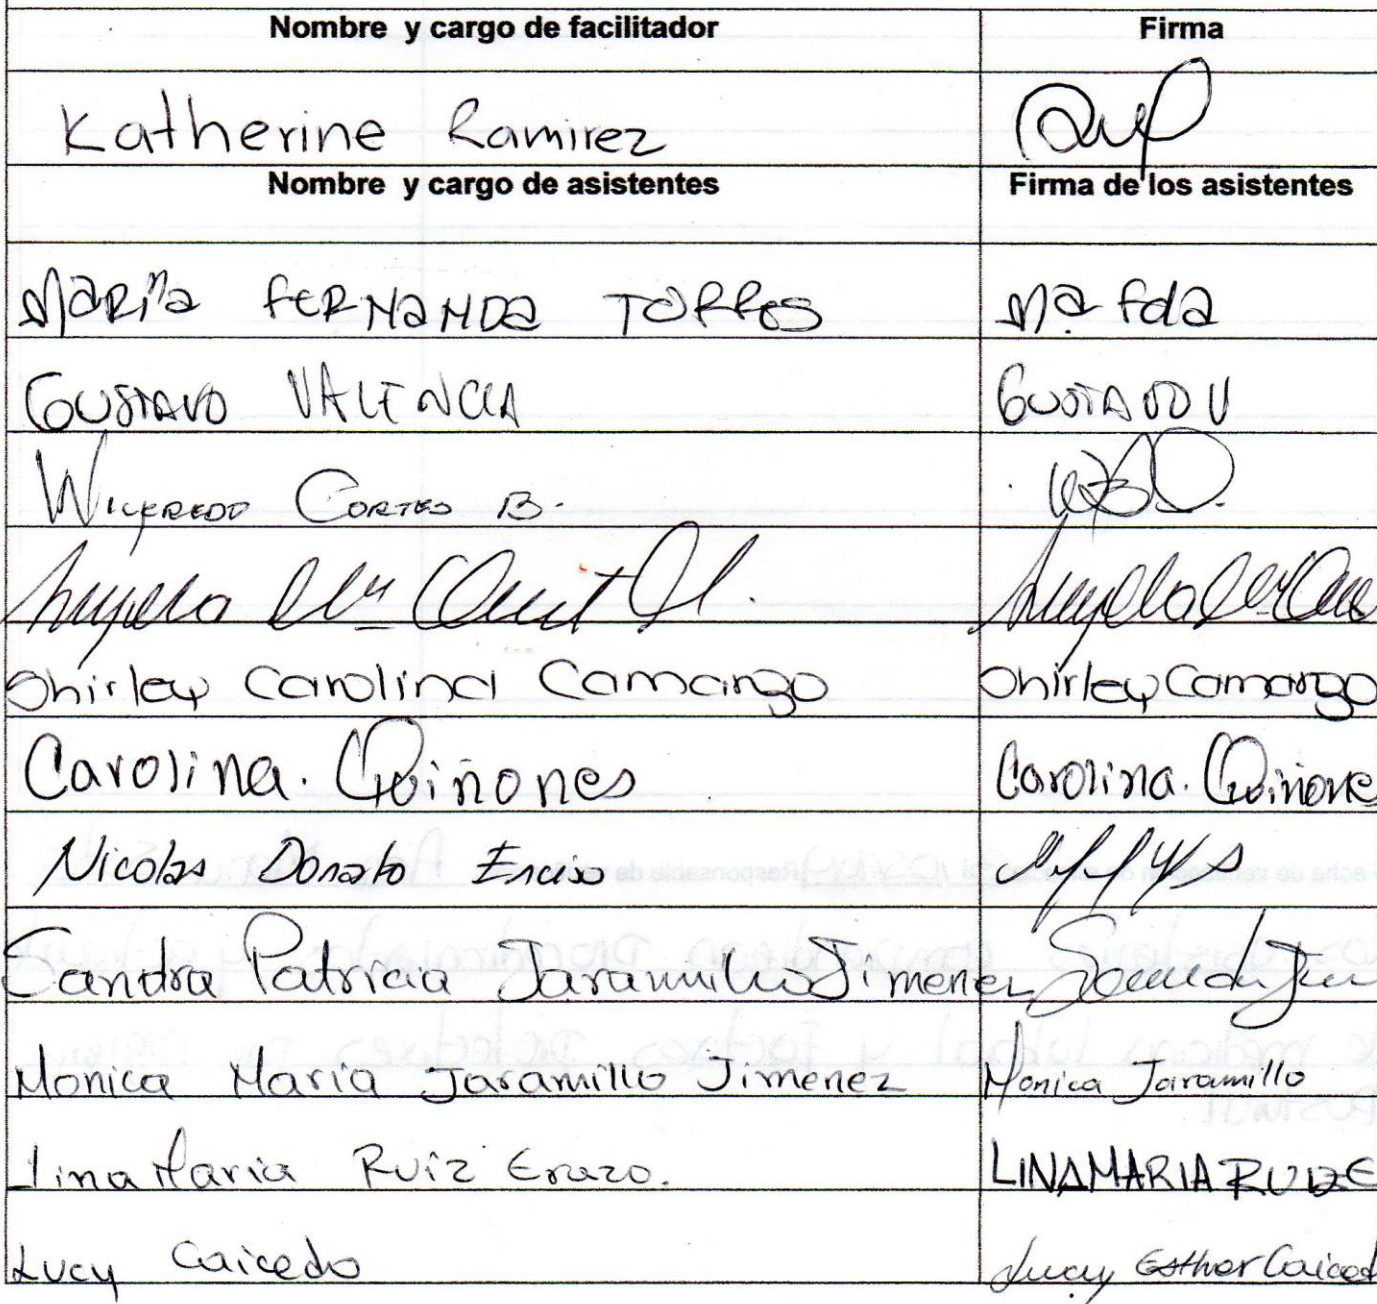 Nombre y cargo de facilitador Firma
Katherine Ramirez
Nombre y cargo de asistentes Firma de los asistentes
MARIa FERNaNDa TORRES Ma. Fda
GUSTAVO VALENCIA GUSTAVO V
WILFREDO CORTES B.
Angela Ma
Shirley Carolina Camargo Shirley Camargo
Carolina. Quiñones Carolina. Quiñone
Nicolas Donato Enciso
Sandra Patricia Jaramillo Jimenez
Monica Maria Jaramillo Jimenez Monica Jaramillo
Lina Maria Ruiz Erazo. LINA MARIA RUIZ E
Lucy Caicedo Lucy Esther Caiced